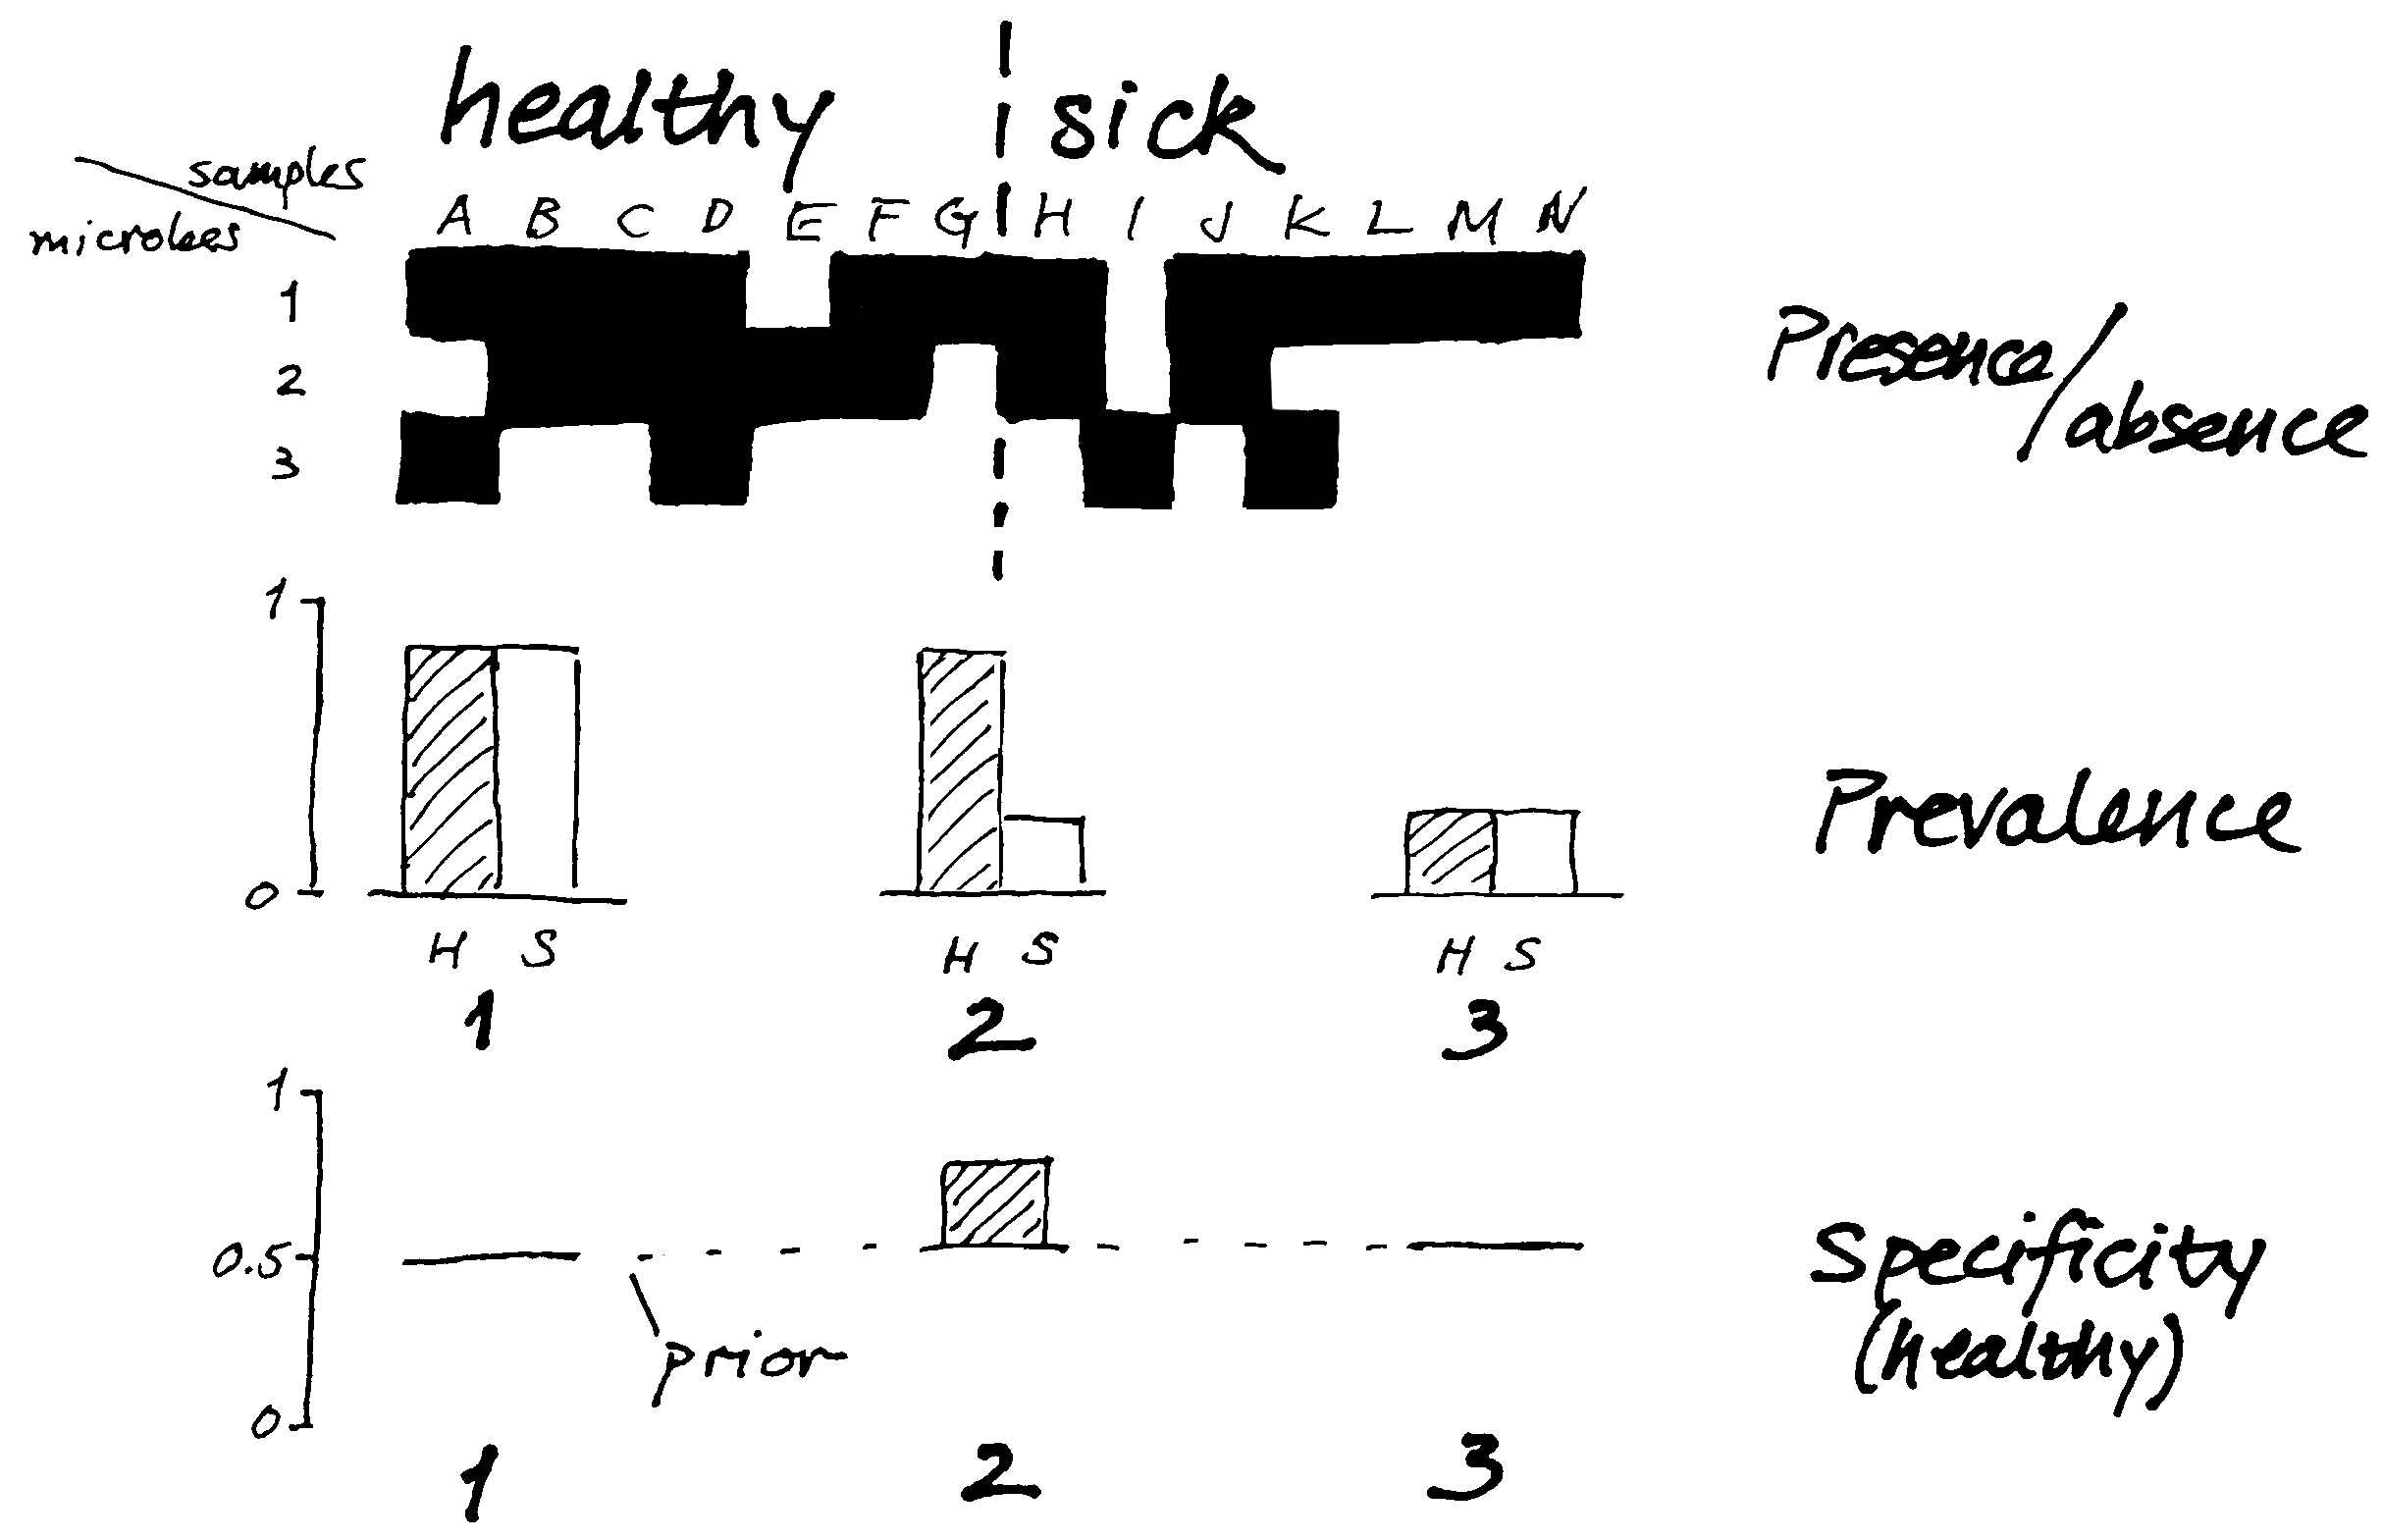 healthy sick
samples
microbes
A B C D E F G H I J K L M N
1
2
3
Presence/
absence
1
0
H S
H S
H S
1
2
3
Prevalence
1
0.5
0
prior
Specificity
(healthy)
1
2
3